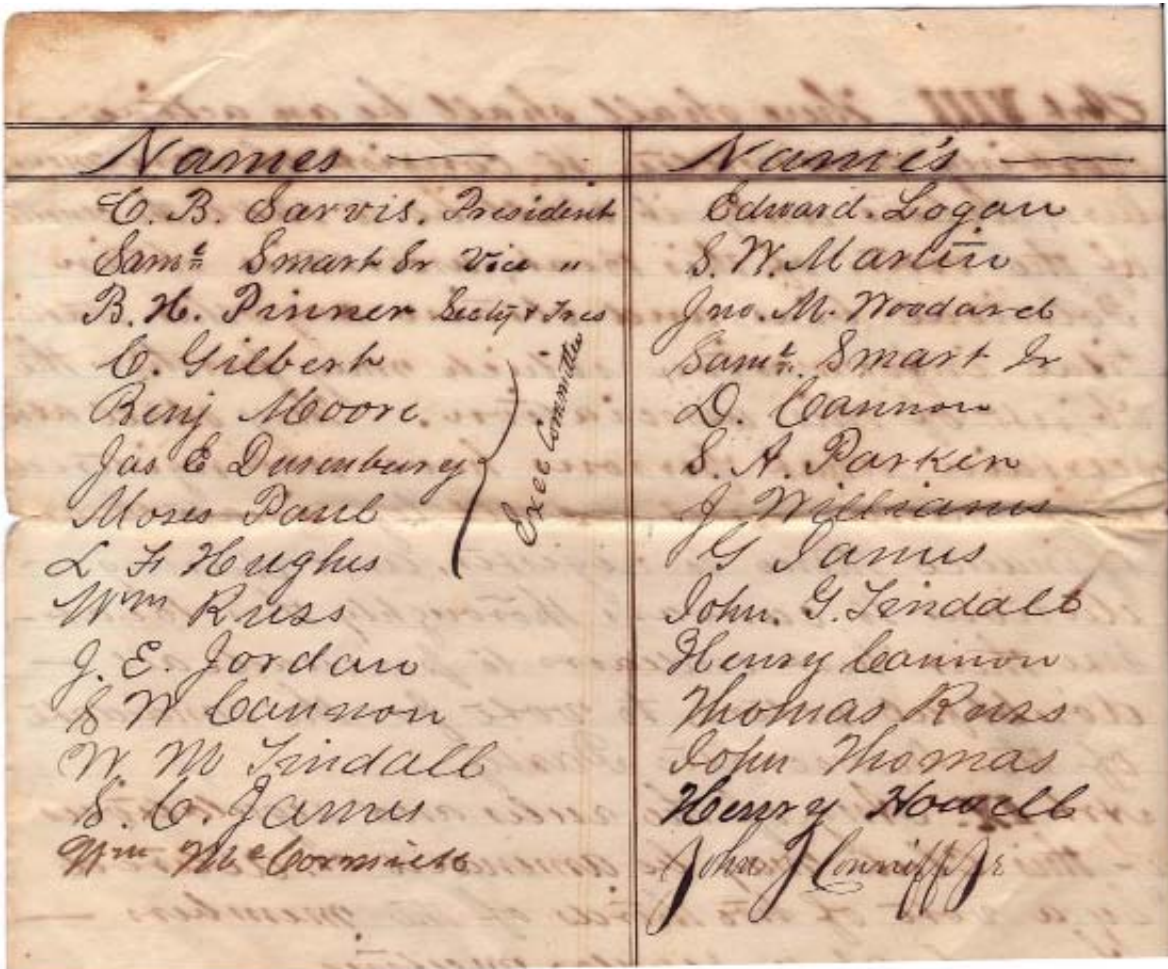 Names
C. B. Sarvis, President
Saml Smart Sr Vice "
B. H. Pinner Secty & Tres
C. Gilbert
Benj Moore
Jas E Dusenbury
Moses Paul
L F Hughes
Wm Russ
J. E. Jordan
S W Cannon
W M Tindall
S. C. James
Wm McCormick
Exec Committee
Name's
Edward. Logan
S. W. Martin
Jno. M. Woodard
Saml. Smart Jr
D. Cannon
S. A. Parker
J Williams
G James
John. G. Tindall
Henry Cannon
Thomas Russ
John Thomas
Henry Howell
John J Conniff Jr